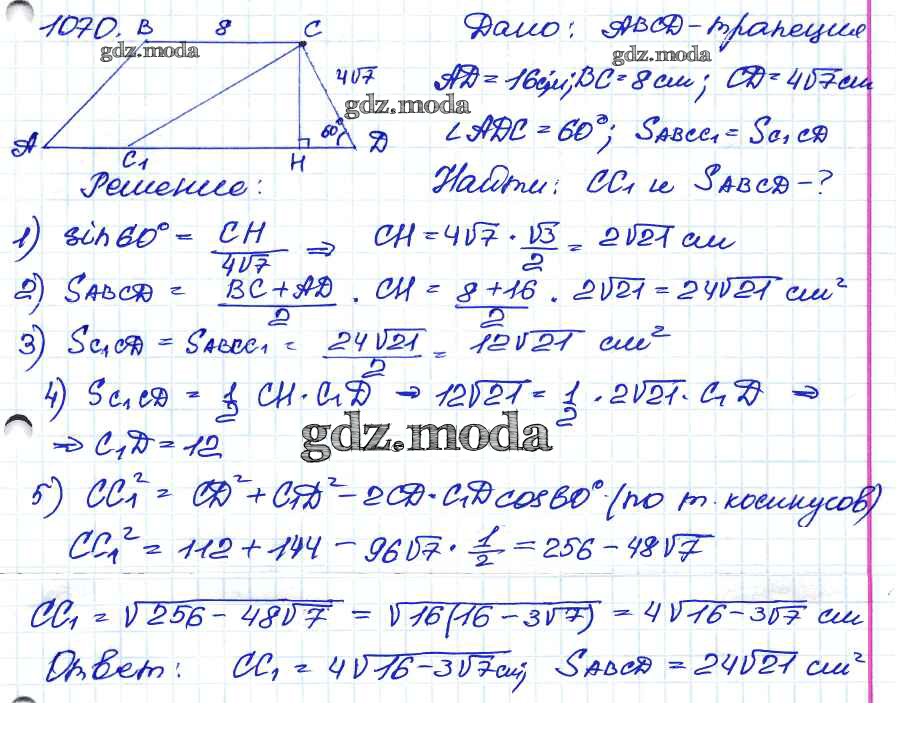 1070. B 8 C Дано: ABCD - трапеция
gdz.moda gdz.moda
4√7 AD = 16см; BC = 8см; CD = 4√7см
gdz.moda
A C₁ H 60° D ∠ADC = 60°; SABCC₁ = SC₁CD
Решение: Найти: CC₁ и SABCD - ?
1) sin60° = CH/4√7 ⇒ CH = 4√7 · √3/2 = 2√21 см
2) SABCD = (BC + AD)/2 · CH = (8 + 16)/2 · 2√21 = 24√21 см²
3) SC₁CD = SABCC₁ = 24√21/2 = 12√21 см²
4) SC₁CD = 1/2 CH · C₁D ⇒ 12√21 = 1/2 · 2√21 · C₁D ⇒
⇒ C₁D = 12
gdz.moda
5) CC₁² = CD² + C₁D² - 2CD · C₁D cos60° (по т. косинусов)
CC₁² = 112 + 144 - 96√7 · 1/2 = 256 - 48√7
CC₁ = √(256 - 48√7) = √(16(16 - 3√7)) = 4√(16 - 3√7) см
Ответ: CC₁ = 4√(16 - 3√7) см; SABCD = 24√21 см²